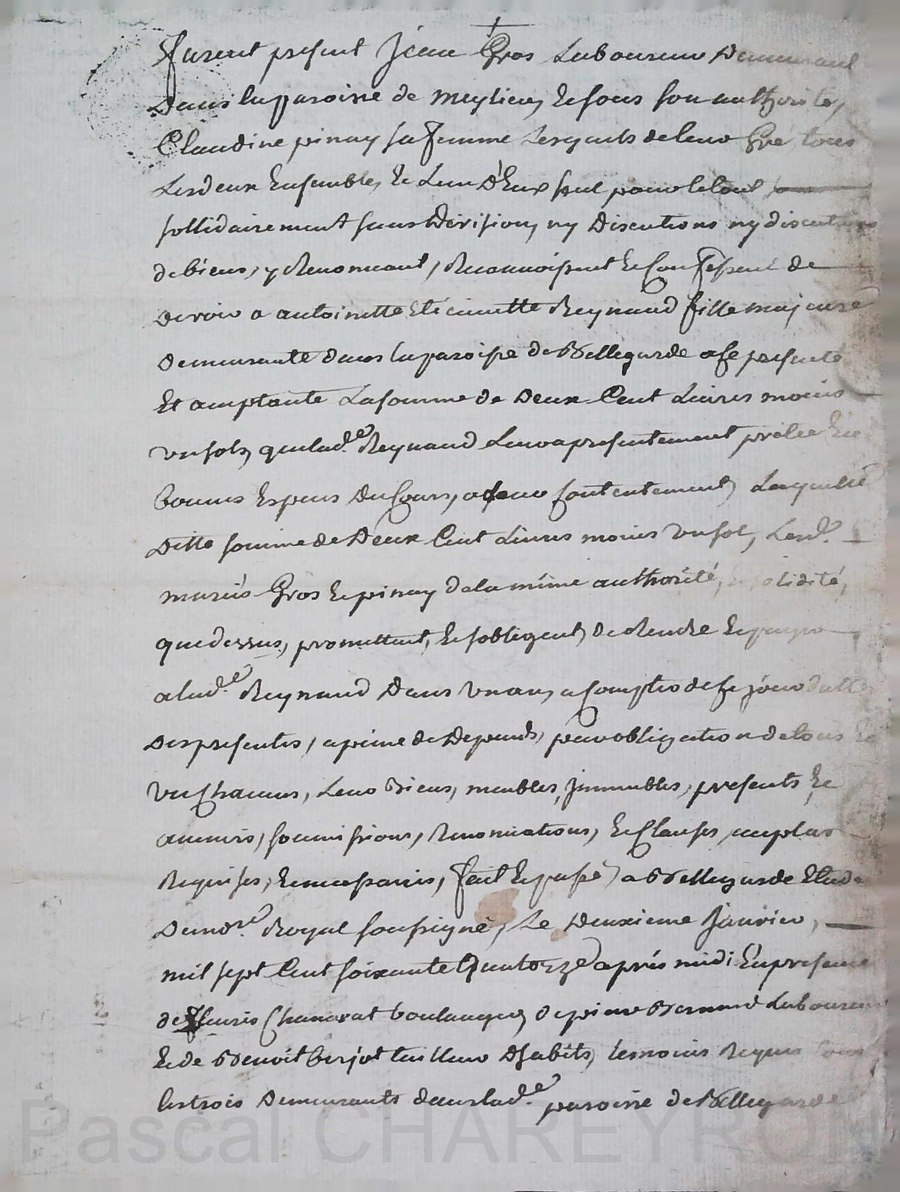 furent present Jean Gros Laboureur Demeurant
Dans la paroisse de meylieu, & sous son authorite,
Claudine pinay sa femme Lesquels de leur Gré tous
Lesdeux Ensembles, & L'un D'Eux seul pour le tout,
sollidairement sans Division, ny Discutions ny
de biens, y Renonceant, Reconnoissent & Confessent de
Devoir a antoinette Reynaud fille majeure
Demeurante dans la paroisse de Bellegarde a se presente
Et acceptante La somme de Deux Cent Livres moins
un sols, que lad.e Reynaud Leur a presentement prêtée En
bonnes Especes Du Cours, a leur contentement, Laquelle
Ditte somme de Deux Cent Livres moins un sol, Lesd.
mariés Gros & pinay de la même authorité, solidité,
que dessus, promettent, & s'obligent, de Rendre & payer
a lad.e Reynaud Dans un an, a Compter de ce jour datte
Des presentes, a peine de Depends, par obligation de tous
un Chacuns, Leur Biens, meubles, jmmeubles, presents &
avenirs, soumissions, Renonciations, & Clauses,
Requises, & necessaires, fait & passé, a Bellegarde Etude
Du no.re Royal soussigné, Le Deuxieme Janvier,
mil sept Cent soixante Quatorze après midi En presence
de fleuris Chanavat boulanger, de pierre Bernard Laboureur
& de Benoit berjot tailleur D'habits, temoins Requis tous
les trois Demeurants dans lad.e paroisse de Bellegarde
Pascal CHAREYRON